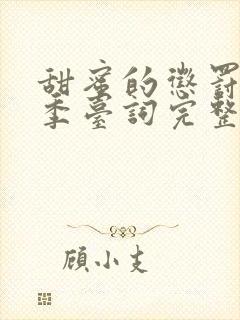 甜蜜的懲罰
季臺詞完整
顧小支